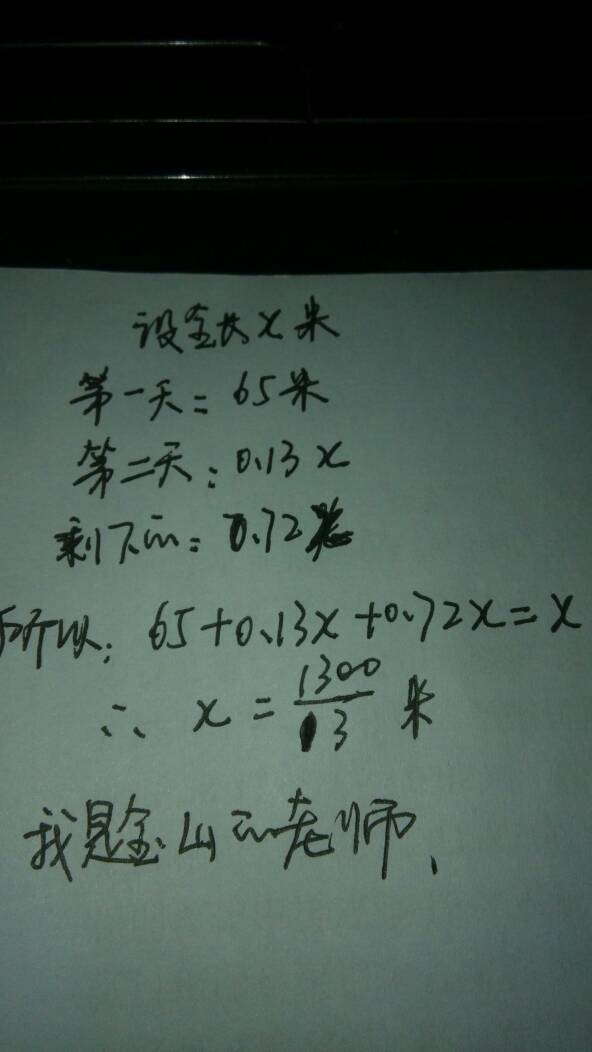 设全长x米
第一天:65米
第二天:0.13x
剩下的:0.72x
所以:65+0.13x+0.72x=x
∴ x=1300/3 米
我是金山的老师、